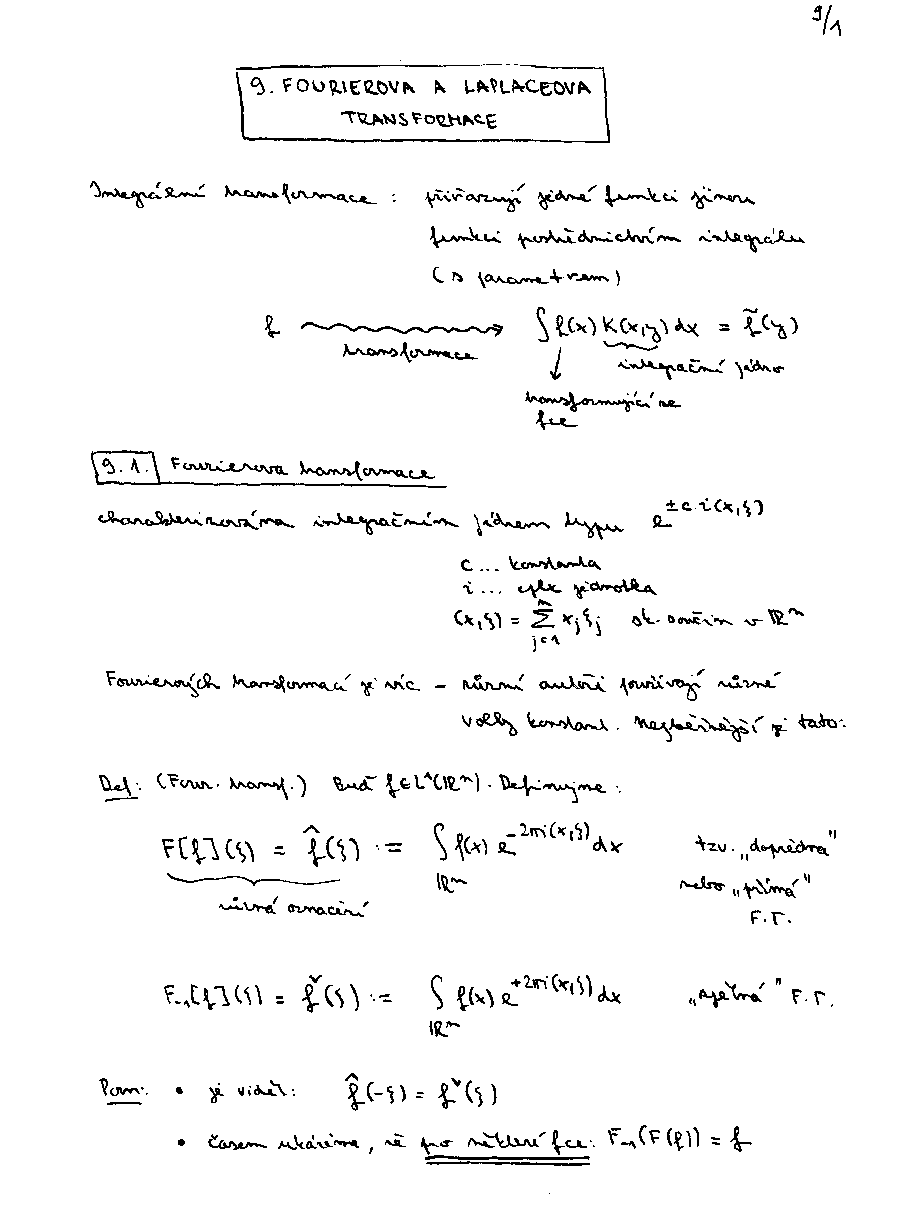 9/1
9. FOURIEROVA A LAPLACEOVA
TRANSFORMACE
Integrální transformace : přiřazují jedné funkci jinou
funkci prostřednictvím integrálu
(s parametrem)
f → ∫ f(x) K(x,y) dx = f̃(y)
transformace
integrační jádro
transformující se
fce
9.1. Fourierova transformace
charakterizována integračním jádrem typu e^{±c·i(x,ξ)}
c ... konstanta
i ... cplx jednotka
(x,ξ) = ∑_{j=1}^{n} x_j ξ_j sk. součin v ℝⁿ
Fourierových transformací je víc – různí autoři používají různé
volby konstant. Nejběžnější je tato:
Def: (Four. transf.) Buď f∈L¹(ℝⁿ). Definujme :
F[f](ξ) = f̂(ξ) := ∫_{ℝⁿ} f(x) e^{-2πi(x,ξ)} dx tzv. „dopředná"
nebo „přímá"
různá označení
F.T.
F₋₁[f](ξ) = f̌(ξ) := ∫_{ℝⁿ} f(x) e^{+2πi(x,ξ)} dx „zpětná" F.T.
Pozn: • je vidět: f̂(-ξ) = fˇ(ξ)
• časem ukážeme, že pro některé fce: F₋₁(F(f)) = f